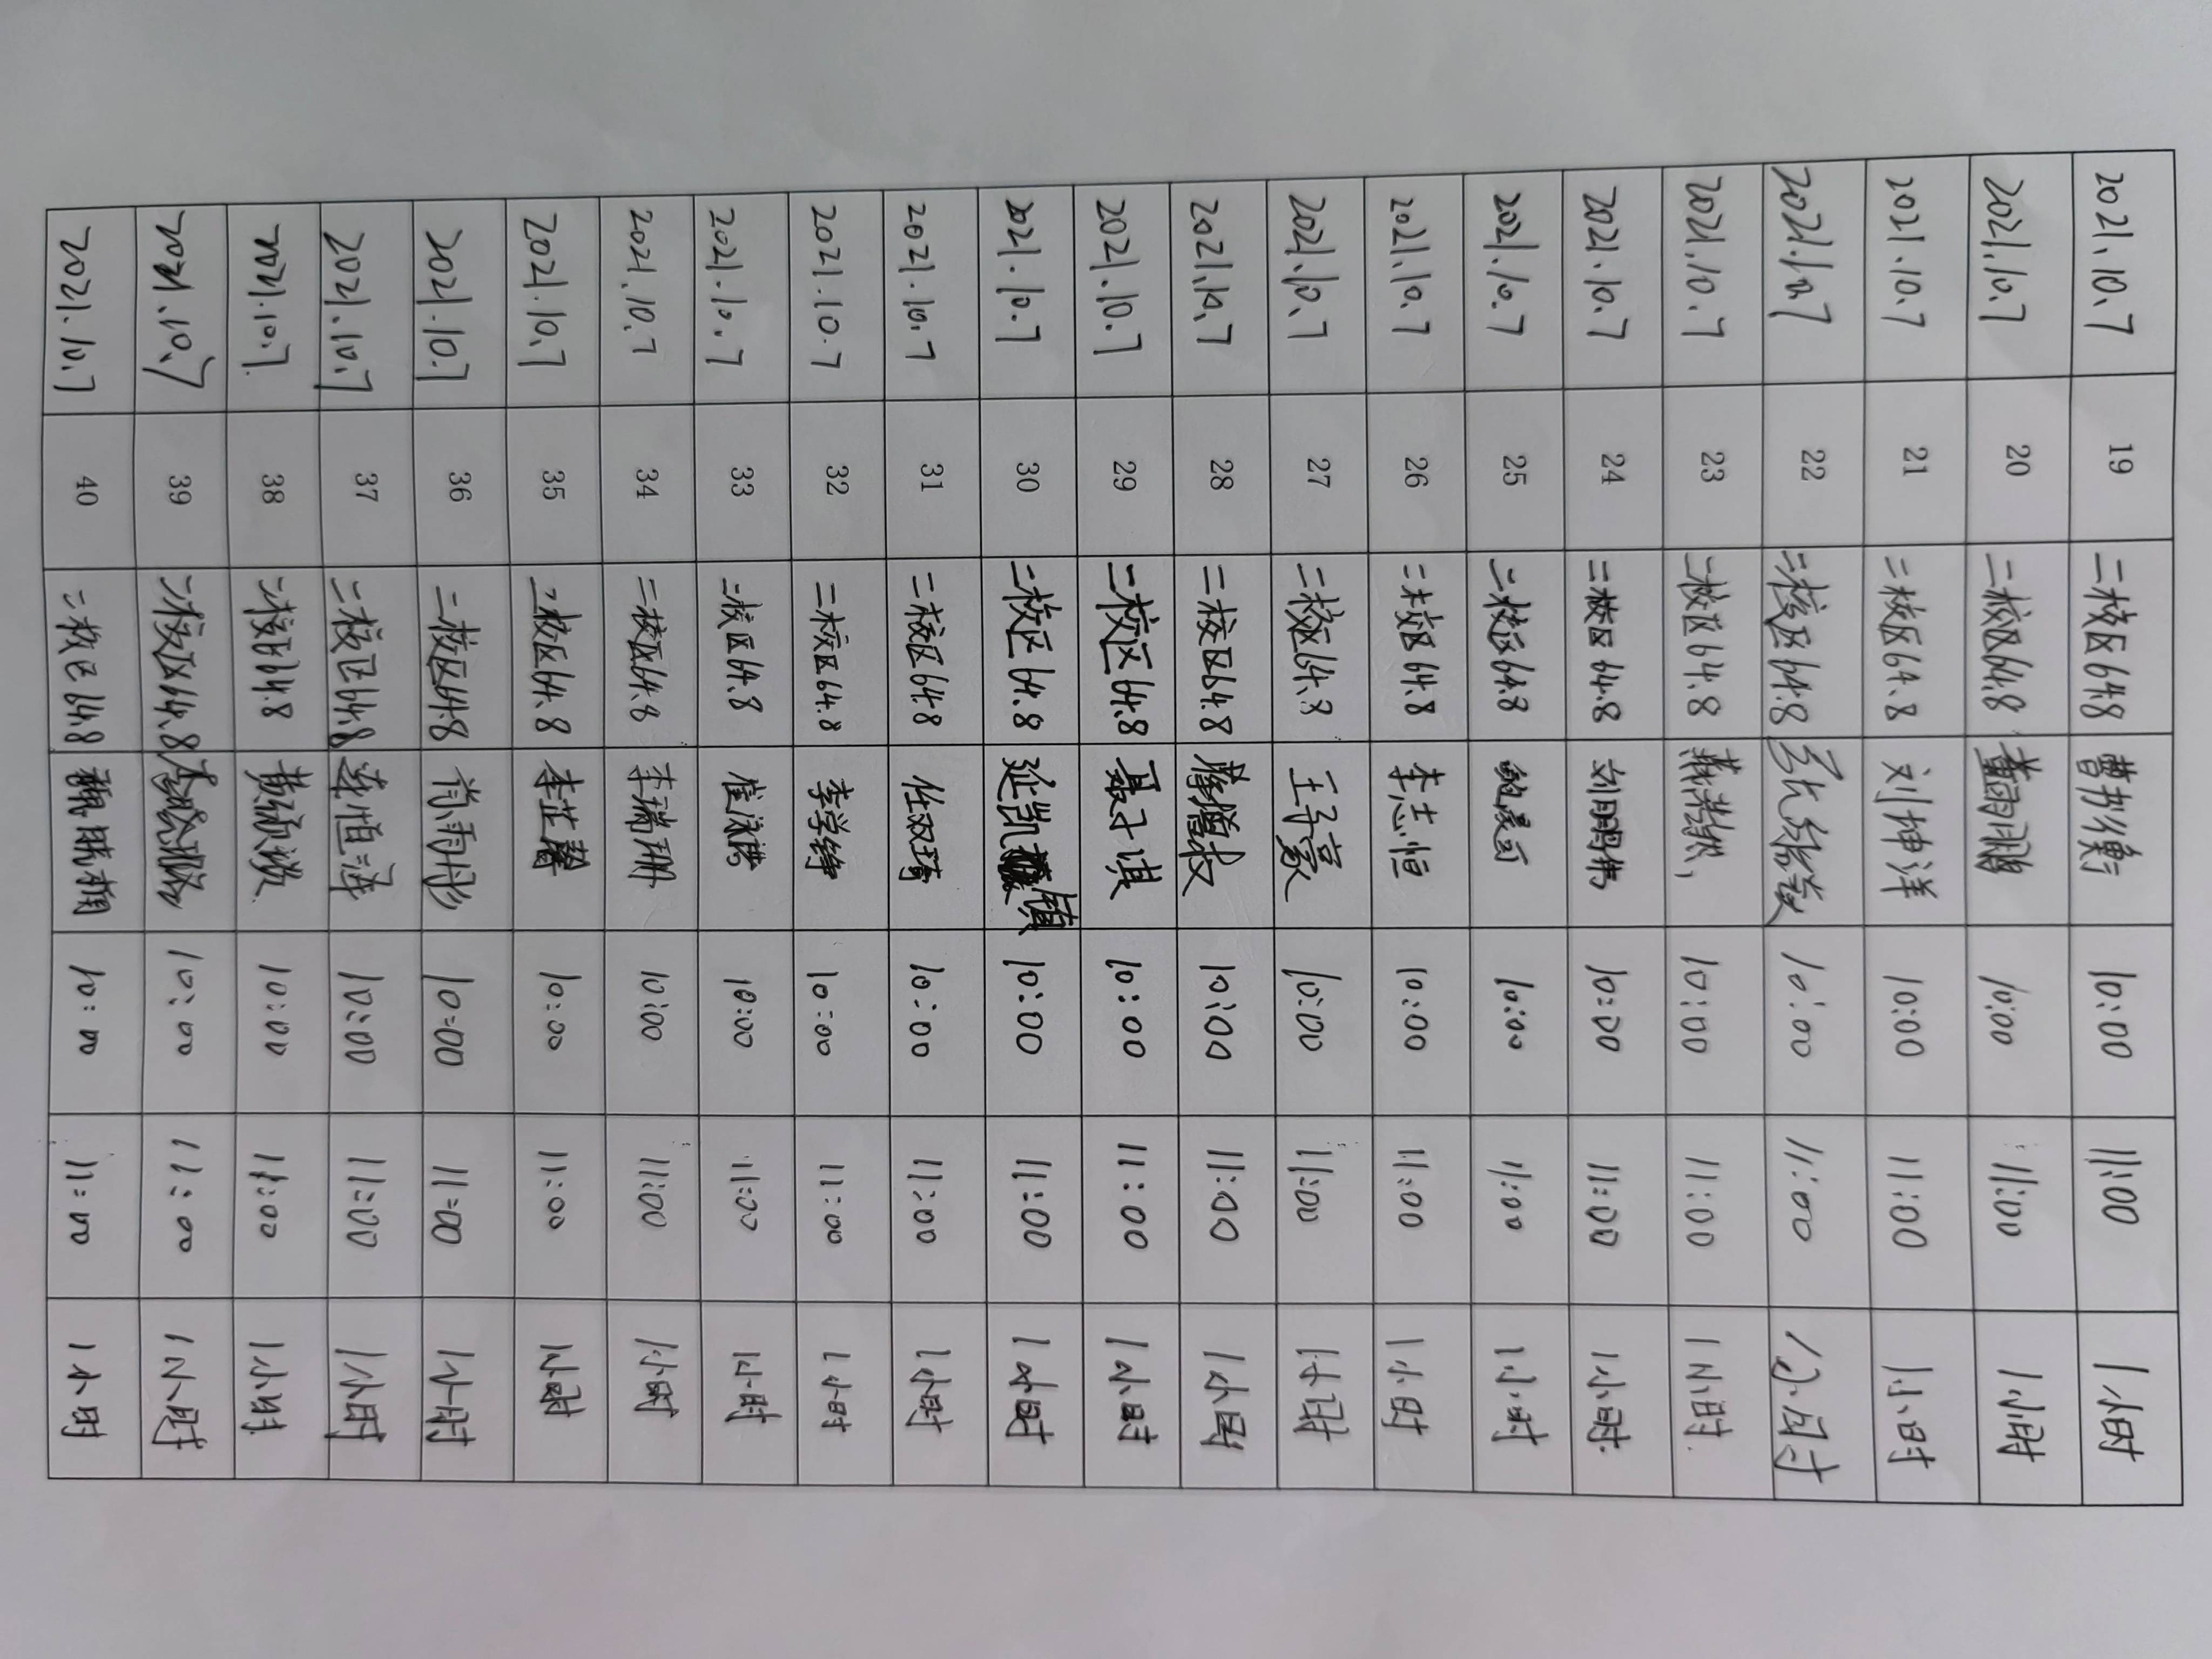 2021.10.7 19 二校区64.8 曹哲衡 10:00 11:00 1小时
2021.10.7 20 二校区64.8 董雨鹏 10:00 11:00 1小时
2021.10.7 21 二校区64.8 刘坤洋 10:00 11:00 1小时
2021.10.7 22 二校区64.8 10:00 11:00 1小时
2021.10.7 23 二校区64.8 10:00 11:00 1小时
2021.10.7 24 二校区64.8 10:00 11:00 1小时
2021.10.7 25 二校区64.8 10:00 11:00 1小时
2021.10.7 26 二校区64.8 李志恒 10:00 11:00 1小时
2021.10.7 27 二校区64.8 王子豪 10:00 11:00 1小时
2021.10.7 28 二校区64.8 10:00 11:00 1小时
2021.10.7 29 二校区64.8 聂子淇 10:00 11:00 1小时
2021.10.7 30 二校区64.8 延凯镇 10:00 11:00 1小时
2021.10.7 31 二校区64.8 任双琦 10:00 11:00 1小时
2021.10.7 32 二校区64.8 李学铮 10:00 11:00 1小时
2021.10.7 33 二校区64.8 10:00 11:00 1小时
2021.10.7 34 二校区64.8 李瑞珊 10:00 11:00 1小时
2021.10.7 35 二校区64.8 李芷馨 10:00 11:00 1小时
2021.10.7 36 二校区64.8 肖雨彤 10:00 11:00 1小时
2021.10.7 37 二校区64.8 10:00 11:00 1小时
2021.10.7 38 二校区64.8 10:00 11:00 1小时
2021.10.7 39 二校区64.8 10:00 11:00 1小时
2021.10.7 40 二校区64.8 10:00 11:00 1小时